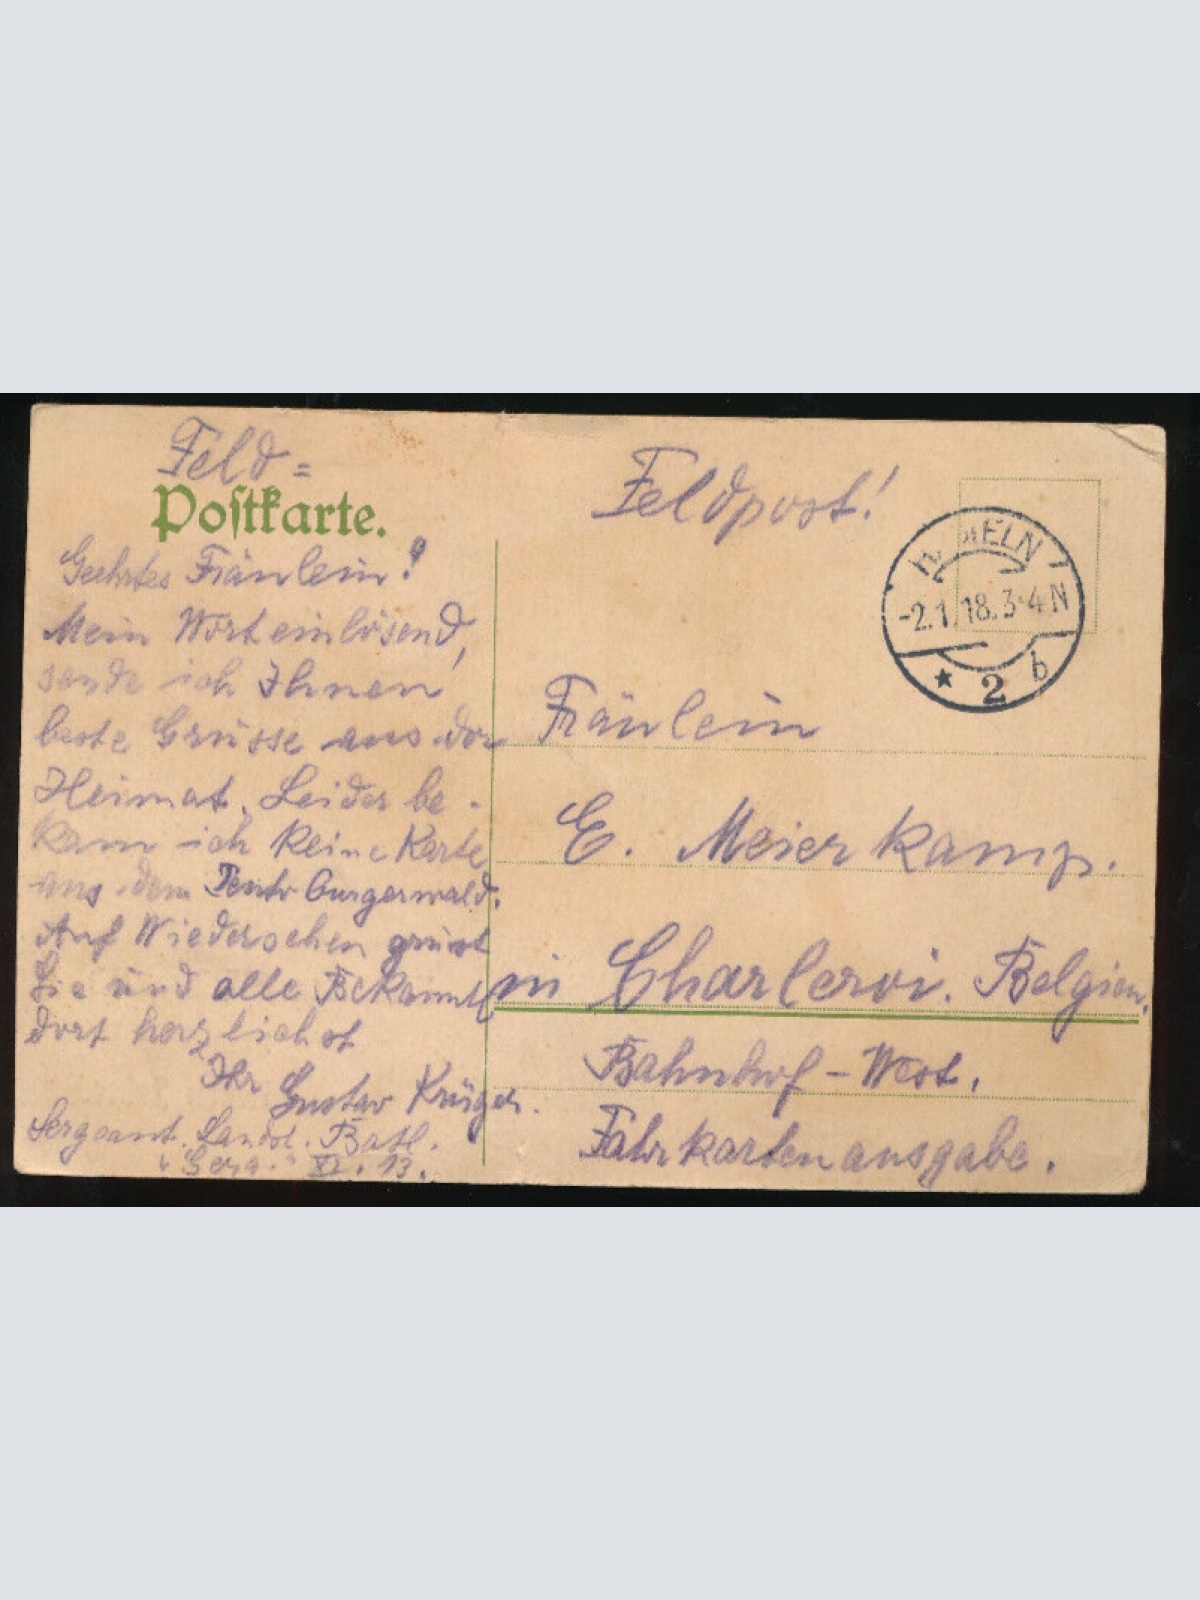 Feld=
Postkarte.
Geehrtes Fräulein!
Mein Wort einlösend,
sende ich Ihnen
beste Grüsse aus der
Heimat. Leider be-
kam ich keine Karte
aus dem Teutoburgerwald.
Auf Wiedersehen grüsst
Sie und alle Bekannte
dort herzlichst
Ihr Gustav Krüger.
Sergeant. Landst. Batl.
"Gera." XI. 13.
Feldpost!
HAMELN
-2.1.18.3-4N
* 2 b
Fräulein
E. Meierkamp.
in Charleroi. Belgien.
Bahnhof - West.
Fahrkartenausgabe.